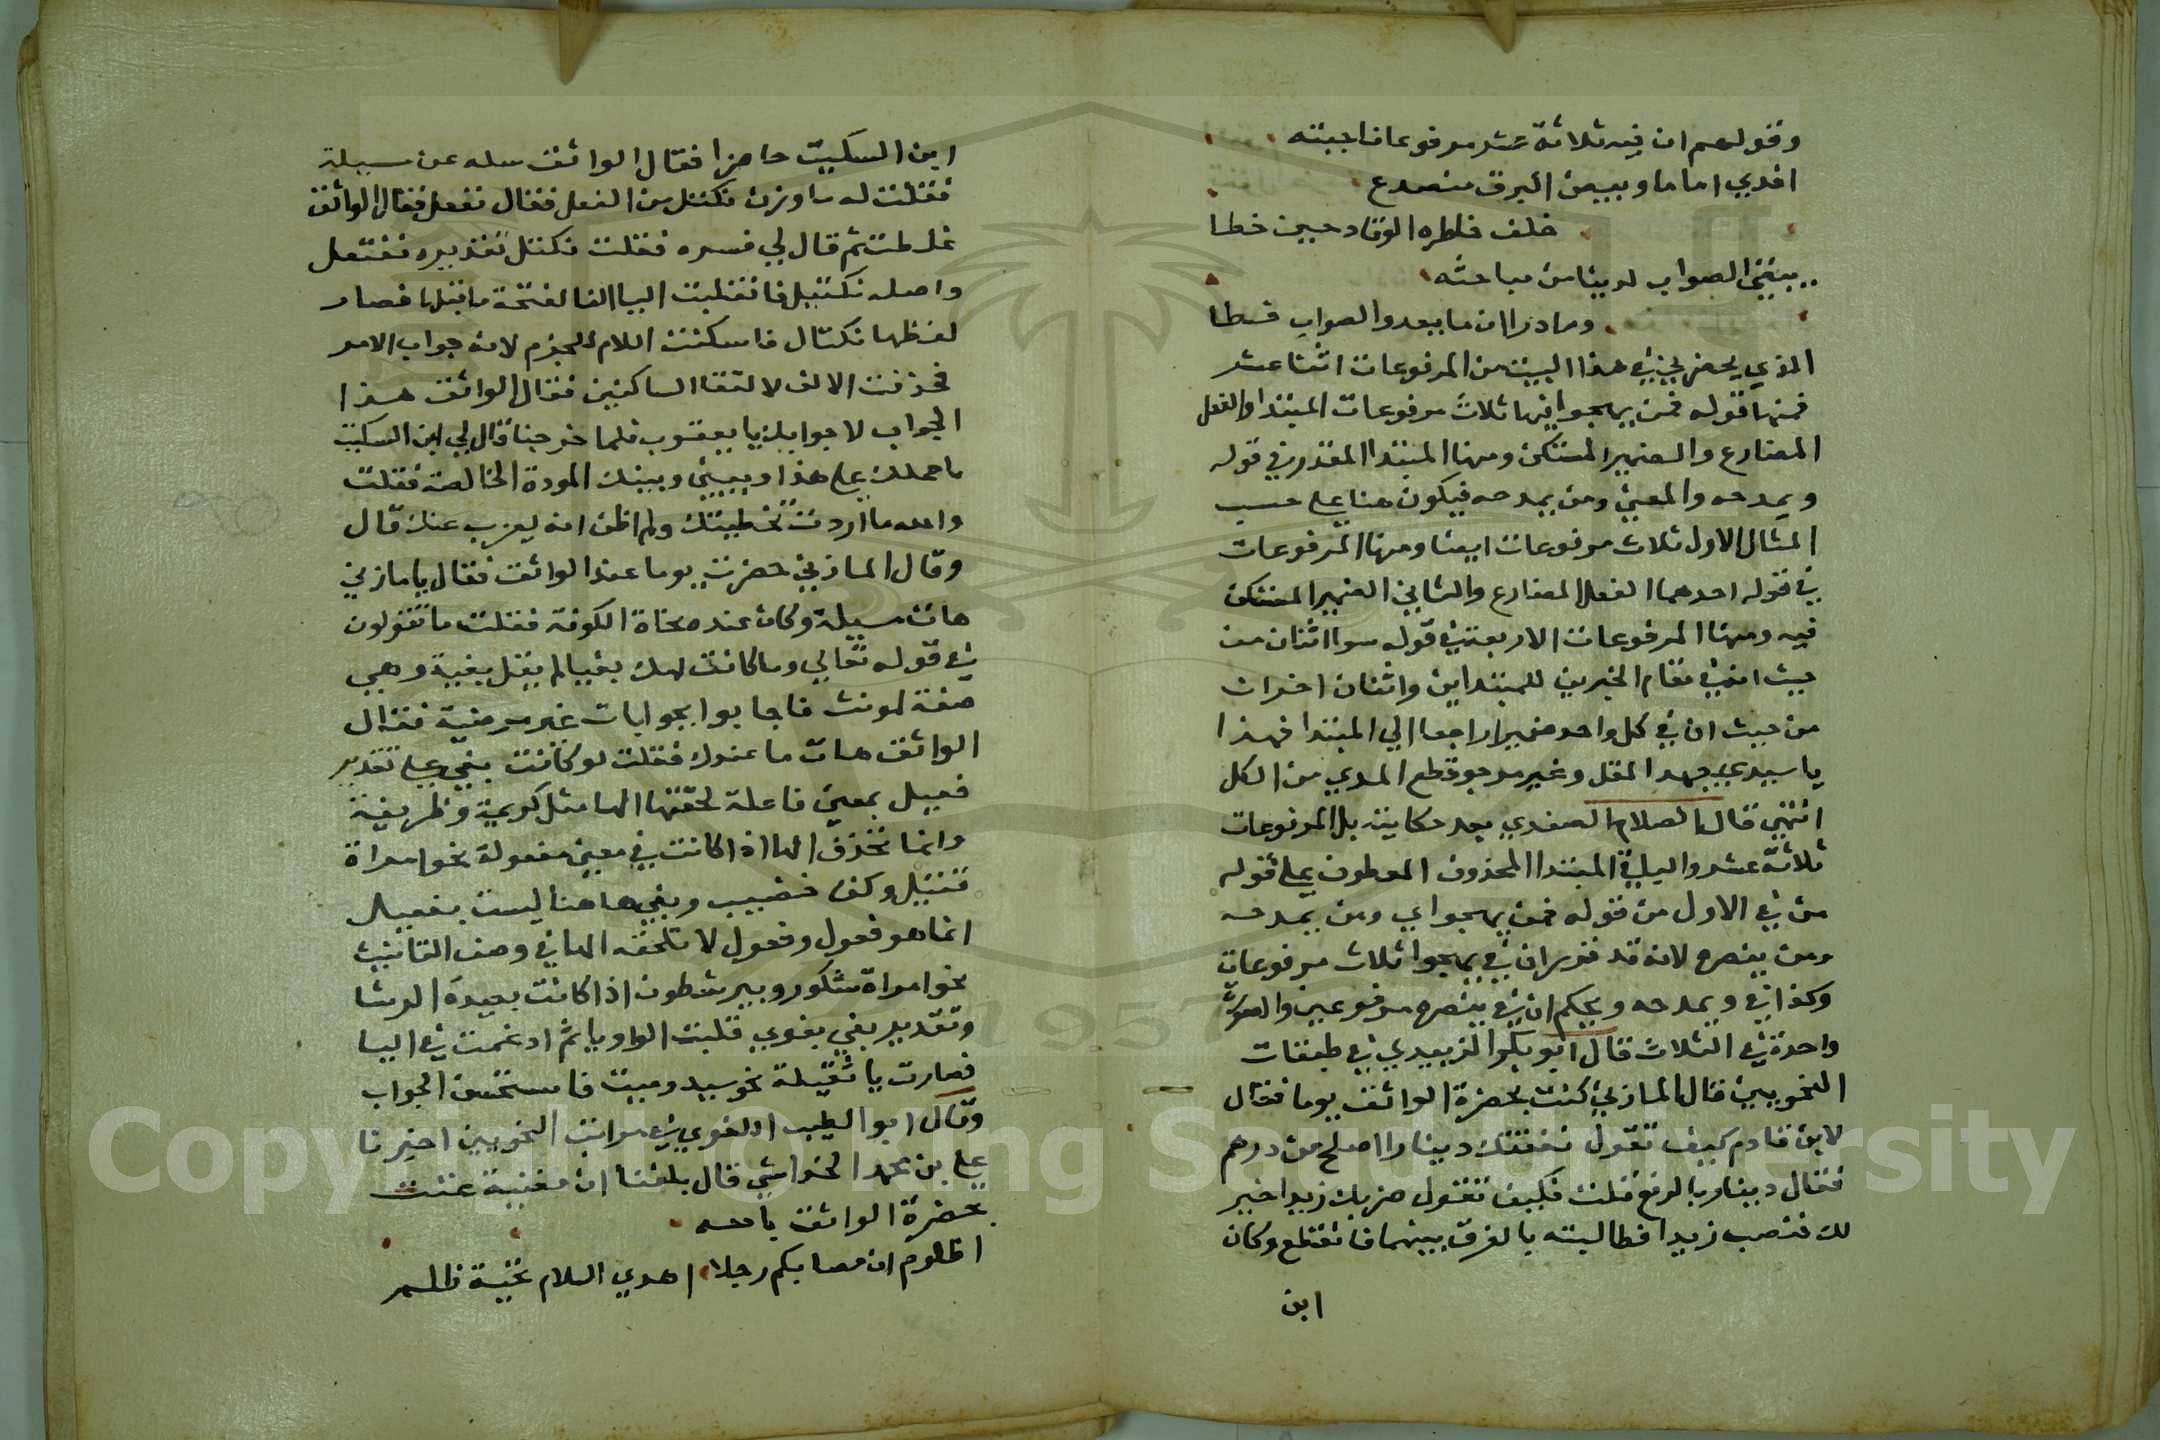 وقولهم ان فيه ثلاثة عشر مرفوعا فاجبته
افدي اماما وبيض البرق منصدع
خلف خاطره الوقاد حين خطا
يبغي الصواب لدينا من مباحثه
وما درا ان ما يبدو الصواب قسطا
الذي يحضرني في هذا البيت من المرفوعات اثنا عشر
فمنها قوله فمن يهجوا فيها ثلاث مرفوعات المبتدا والفعل
المضارع والضمير المستكن ومنها المبتدا المقدر في قوله
ويمدحه والمعني ومن يمدحه فيكون هنا على حسب
المثال الاول ثلاث مرفوعات ايضا ومنها المرفوعات
في قوله احدهما الفعل المضارع والثاني الضمير المستكن
فيه ومنها المرفوعات الاربعة في قوله سوا اثنان من
حيث انه في مقام الخبرين للمبتداين واثنان اخران
من حيث ان في كل واحد ضميرا راجعا الي المبتدا فهذا
يا سيدي جهد المقل وغير مرجو قطع المدي من الكل
انتهي قال الصلاح الصفدي بعد حكايته بل المرفوعات
ثلاثة عشر والباقي المبتدا المحذوف المعطوف علي قوله
من في الاول من قوله فمن يهجو اي ومن يمدحه
ومن ينصره لانه قد تقرر ان في يهجوا ثلاث مرفوعات
وكذا في ويمدحه ويحكم ان في ينصره مرفوعين والصورة
واحدة في الثلاث قال ابو بكر الزبيدي في طبقات
النحويين قال المازني كنت بحضرة الواثق يوما فقال
لابن قادم كيف تقول نفقتك دينارا اصلح من درهم
فقال دينار بالرفع قلت فكيف تقول ضربك زيدا خير
لك فنصب زيدا فطالبته بالفرق بينهما فانقطع وكان
ابن
ابن السكيت حاضرا فقال الواثق سله عن مسيلة
فقلت له ما وزن نكتل من الفعل فقال نفعل فقال الواثق
غلطت ثم قال لي فسره فقلت نكتل تقديره نفتعل
واصله نكتيل فانقلبت اليا الفا لفتحة ما قبلها فصار
لفظها نكتال فاسكنت اللام للجزم لانه جواب الامر
فحذفت الالف لالتقا الساكنين فقال الواثق هذا
الجواب لا جوابك يا يعقوب فلما خرجنا قال لي ابن السكيت
ما حملك علي هذا وبيني وبينك المودة الخالصة فقلت
والله ما اردت تخطيتك ولم اظن انه يعزب عنك قال
وقال المازني حضرت يوما عند الواثق فقال يا مازني
هات مسيلة وكان عنده نحاة الكوفة فقلت ما تقولون
في قوله تعالي وما كانت امك بغيا لم يقل بغية وهي
صفة لمونث فاجابوا بجوابات غير مرضية فقال
الواثق هات ما عندك فقلت لو كانت بغي علي تقدير
فعيل بمعني فاعلة لحقتها الها مثل كريمة وظريفة
وانما تحذف الها اذا كانت في معني مفعولة نحو امراة
قتيل وكف خضيب وبغي هاهنا ليست بفعيل
انما هو فعول وفعول لا تلحقه الها في وصف التانيث
نحو امراة شكور وبير شطون اذا كانت بعيدة الرشا
وتقدير بغي بغوي قلبت الواو يا ثم ادغمت في اليا
فصارت يا ثقيلة نحو سيد وميت فاستحسن الجواب
وقال ابو الطيب اللغوي في مراتب النحويين اخبرنا
علي بن محمد الخداشي قال بلغنا ان مغنية غنت
بحضرة الواثق يا محمد
اظلوم ان مصابكم رجلا اهدي السلام تحية ظلم
Copyright © King Saud University
1957